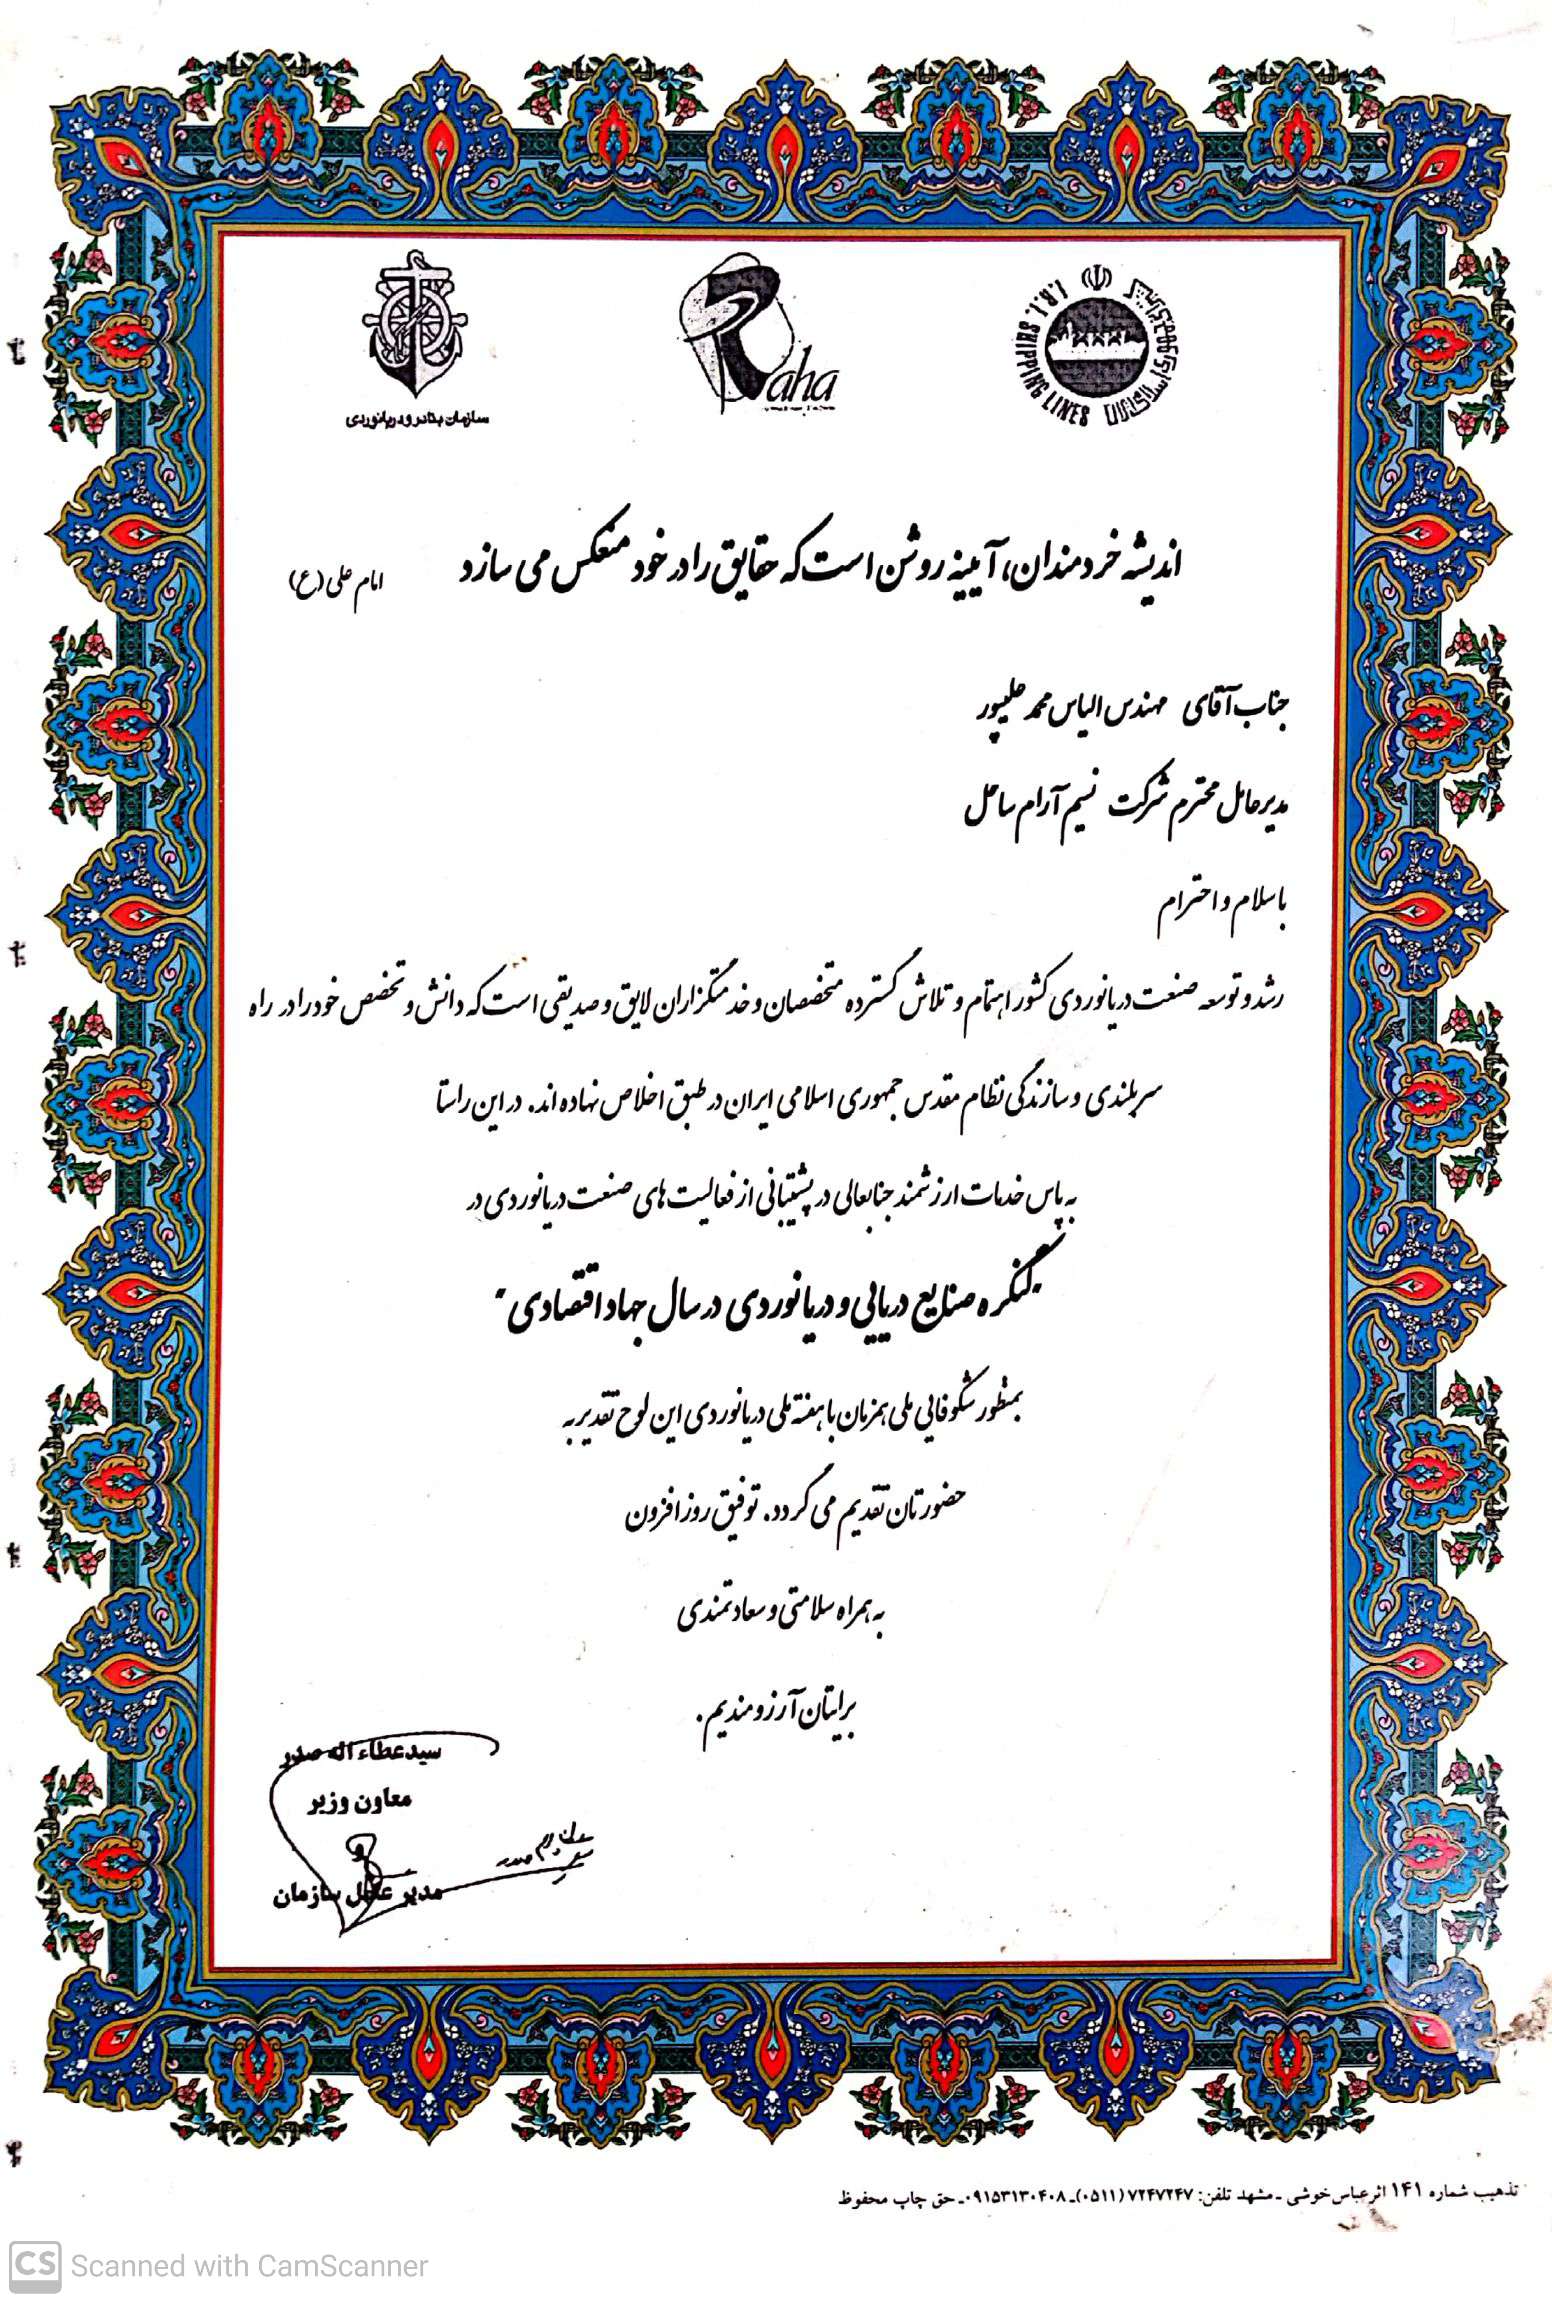 سازمان بنادر و دریانوردی
Raha
I.R.I. SHIPPING LINES
اندیشه خردمندان، آیینه روشن است که حقایق را در خود منعکس می سازد
امام علی (ع)
جناب آقای مهندس الیاس محمد علیپور
مدیرعامل محترم شرکت نسیم آرام ساحل
با سلام و احترام
رشد و توسعه صنعت دریانوردی کشور اهتمام و تلاش گسترده متخصصان و خدمتگزاران لایق و صدیقی است که دانش و تخصص خود را در راه
سربلندی و سازندگی نظام مقدس جمهوری اسلامی ایران در طبق اخلاص نهاده اند. در این راستا
به پاس خدمات ارزشمند جنابعالی در پشتیبانی از فعالیت های صنعت دریانوردی در
"کنگره صنایع دریایی و دریانوردی در سال جهاد اقتصادی"
بمنظور شکوفائی ملی همزمان با هفته ملی دریانوردی این لوح تقدیر به
حضورتان تقدیم می گردد. توفیق روز افزون
به همراه سلامتی و سعادتمندی
برایتان آرزومندیم.
سید عطاء اله صدر
معاون وزیر
مدیر عامل سازمان
تذهیب شماره ۱۴۱ اثر عباس خوشی - مشهد تلفن: ۷۲۴۷۲۴۷ (۰۵۱۱) - ۰۹۱۵۳۱۳۰۴۰۸ - حق چاپ محفوظ
CS Scanned with CamScanner